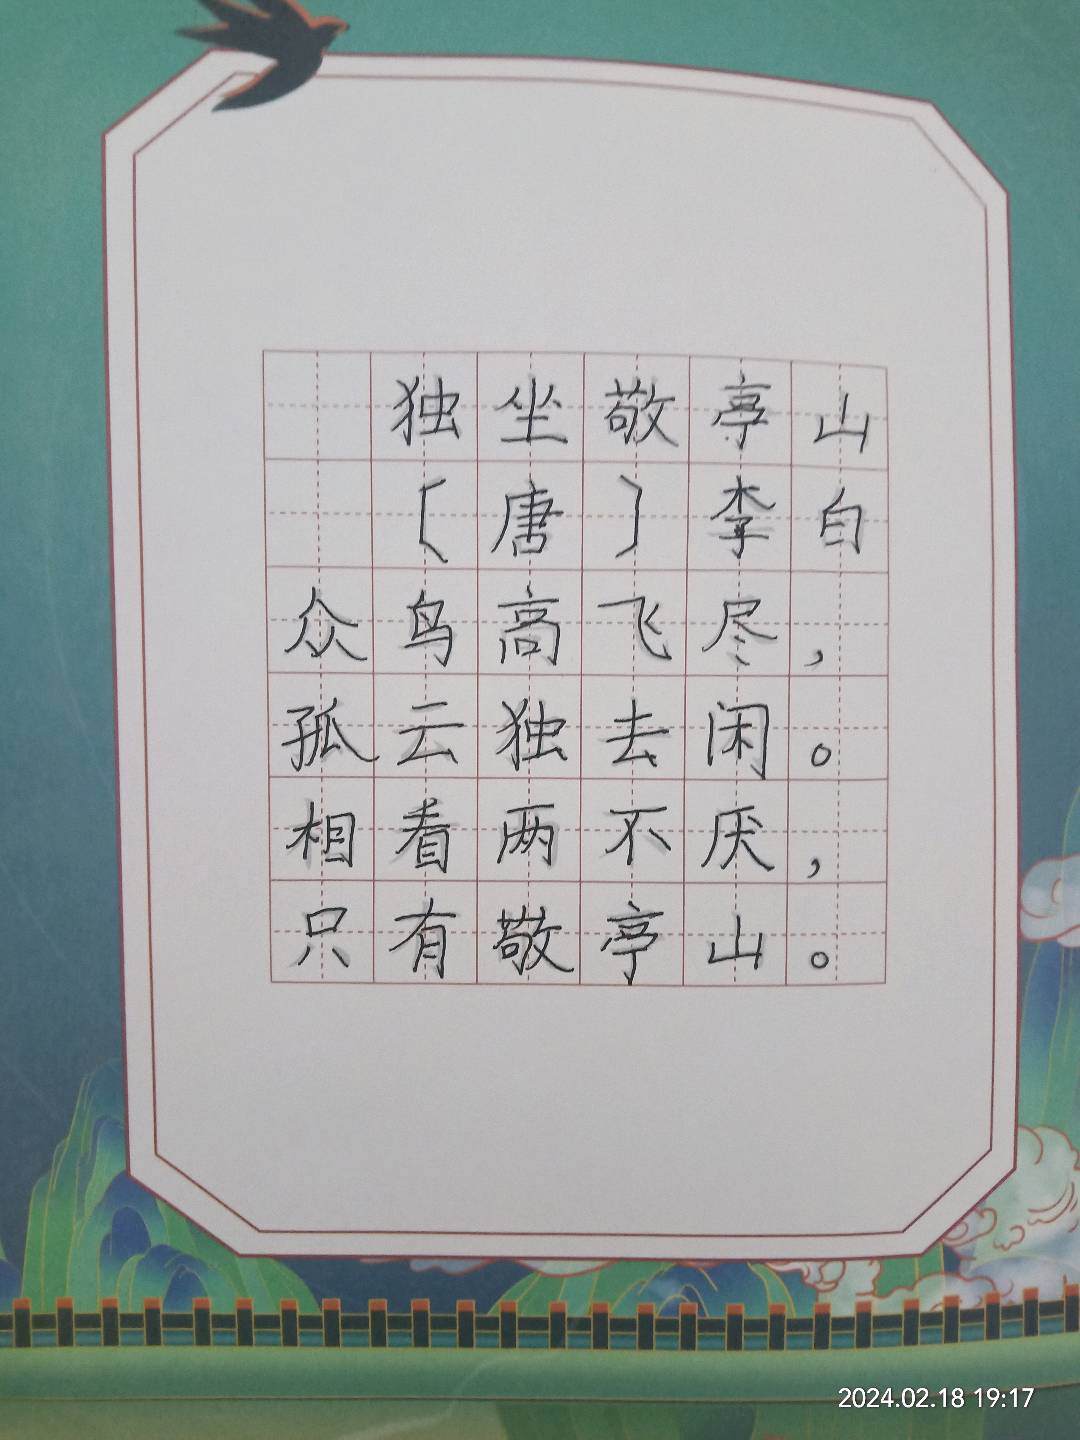 独坐敬亭山
〔唐〕李白
众鸟高飞尽，
孤云独去闲。
相看两不厌，
只有敬亭山。
2024.02.18 19:17